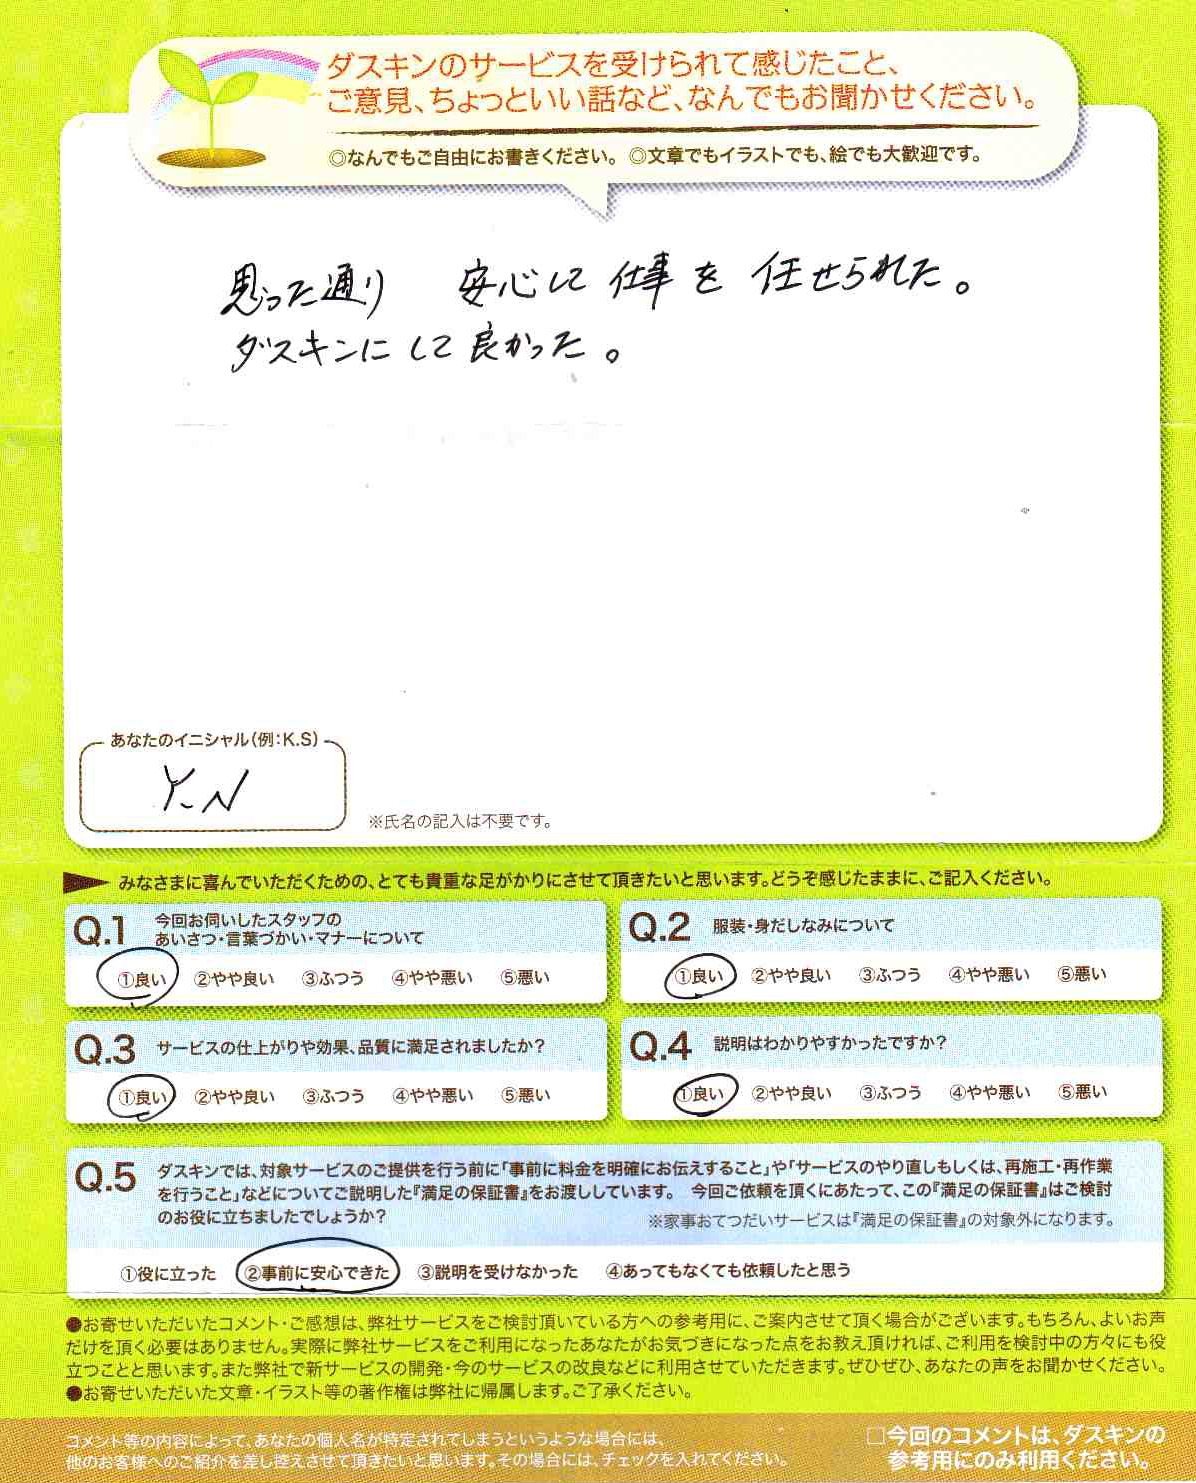 ダスキンのサービスを受けられて感じたこと、
ご意見、ちょっといい話など、なんでもお聞かせください。
◎なんでもご自由にお書きください。 ◎文章でもイラストでも、絵でも大歓迎です。
思った通り 安心して 仕事を 任せられた。
ダスキンにして良かった。
あなたのイニシャル(例:K.S)
Y.N
※氏名の記入は不要です。
みなさまに喜んでいただくための、とても貴重な足がかりにさせて頂きたいと思います。どうぞ感じたままに、ご記入ください。
Q.1 今回お伺いしたスタッフの
あいさつ・言葉づかい・マナーについて
①良い ②やや良い ③ふつう ④やや悪い ⑤悪い
Q.2 服装・身だしなみについて
①良い ②やや良い ③ふつう ④やや悪い ⑤悪い
Q.3 サービスの仕上がりや効果、品質に満足されましたか?
①良い ②やや良い ③ふつう ④やや悪い ⑤悪い
Q.4 説明はわかりやすかったですか?
①良い ②やや良い ③ふつう ④やや悪い ⑤悪い
Q.5 ダスキンでは、対象サービスのご提供を行う前に「事前に料金を明確にお伝えすること」や「サービスのやり直しもしくは、再施工・再作業
を行うこと」などについてご説明した『満足の保証書』をお渡ししています。 今回ご依頼を頂くにあたって、この『満足の保証書』はご検討
のお役に立ちましたでしょうか?
※家事おてつだいサービスは『満足の保証書』の対象外になります。
①役に立った ②事前に安心できた ③説明を受けなかった ④あってもなくても依頼したと思う
●お寄せいただいたコメント・ご感想は、弊社サービスをご検討頂いている方への参考用に、ご案内させて頂く場合がございます。もちろん、よいお声
だけを頂く必要はありません。実際に弊社サービスをご利用になったあなたがお気づきになった点をお教え頂ければ、ご利用を検討中の方々にも役
立つことと思います。また弊社で新サービスの開発・今のサービスの改良などに利用させていただきます。ぜひぜひ、あなたの声をお聞かせください。
●お寄せいただいた文章・イラスト等の著作権は弊社に帰属します。ご了承ください。
コメント等の内容によって、あなたの個人名が特定されてしまうというような場合には、
他のお客様へのご紹介を差し控えさせて頂きたいと思います。その場合には、チェックを入れてください。
□今回のコメントは、ダスキンの
参考用にのみ利用ください。